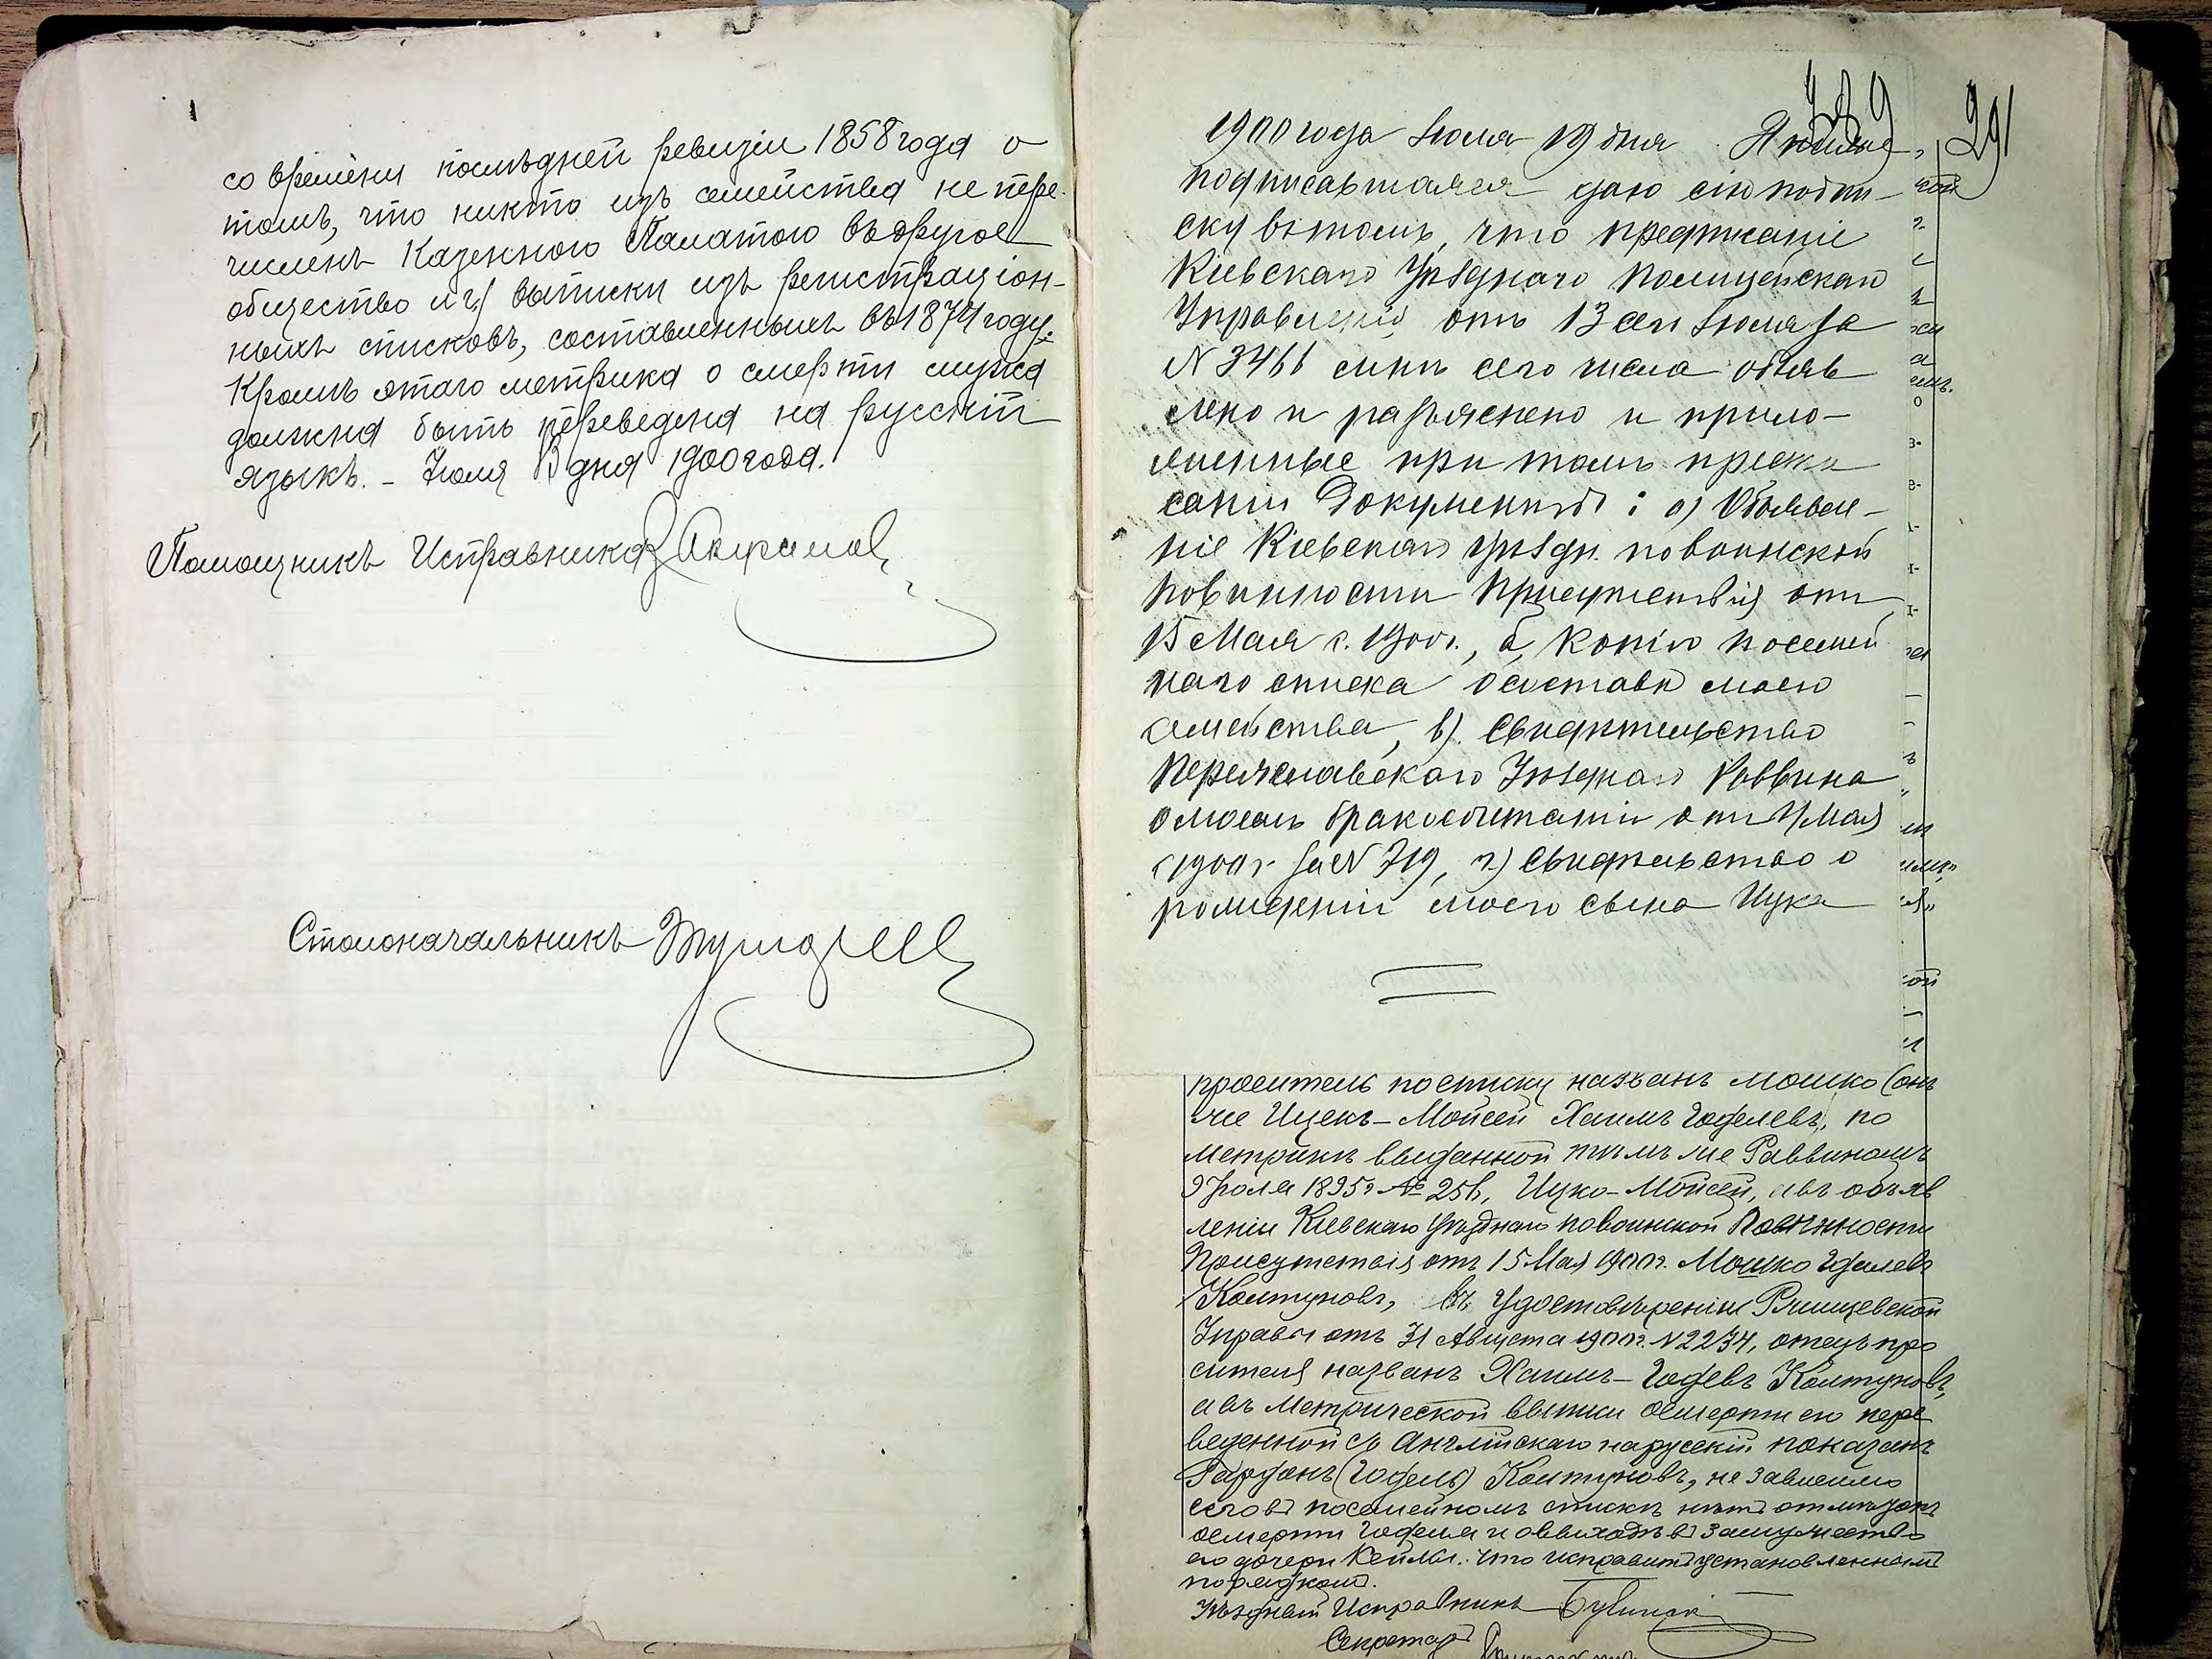 со времени послѣдней ревизіи 1858 года о
томъ, что никто изъ семейства не пере-
численъ Казенною Палатою въ другое
общество и г) выписки изъ регистраціон-
ныхъ списковъ, составленныхъ въ 1874 году.
Кромѣ этого метрика о смерти мужа
должна быть переведена на русскій
языкъ. – Іюля 13 дня 1900 года.
Помощникъ Исправника
Столоначальникъ
389 291
1900 года Іюля 19 дня Я ниже
подписавшаяся даю сію подпи-
ску въ томъ, что предписаніе
Кіевскаго Уѣзднаго Полицейскаго
Управленія отъ 13 сего Іюля за
N 3466 мнѣ сего числа объяв
лено и разъяснено и прило-
женные при томъ предпи
саніи документы: а) Объявле-
ніе Кіевскаго Уѣздн. по воинской
повинности Присутствія отъ
15 Мая с. 1900 г., б, копію посемей
наго списка о составѣ моего
семейства, в) Свидѣтельство
Переяславскаго Уѣзднаго Раввина
о моемъ бракосочетаніи отъ 4 Мая
с 1900 г. за N 719, г) Свидѣтельство о
рожденіи моего сына Ицка
проситель по списку названъ Мошко (онъ
же Ицекъ-Мойсей Хаимъ Годелевъ, по
метрикѣ выданной тѣмъ же Раввиномъ
9 Іюля 1895 г № 256, Ицко-Мойсей, а въ объяв
леніи Кіевскаго Уѣзднаго по воинской Повинности
Присутствія отъ 15 Мая 1900 г. Мошко Гделевъ
Колтуновъ, въ удостовѣреніи Ржищевской
Управы отъ 31 Августа 1900 г. N 2234, отецъ про
сителя названъ Хаимъ-Годевъ Колтуновъ,
а въ метрической выписи о смерти его пере
веденной съ Англійскаго на русскій показанъ
Гардонъ (Годель) Колтуновъ, не зависимо
сего въ посемейномъ спискѣ нѣтъ отмѣтокъ
о смерти Годеля и о выходѣ въ замужество
его дочери Кейлы. что исправить установленнымъ
порядкомъ.
Уѣздный Исправникъ
Секретарь